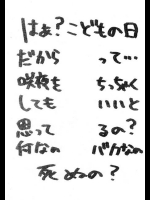 はぁ？こどもの日
だから って…
咲夜も ちっちゃく
しても いいと
思って るの？
何なの バカなの
死ぬの？